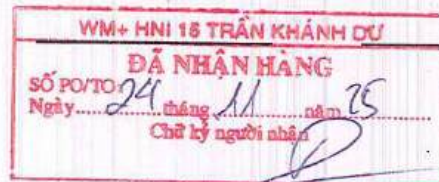 WM+ HNI 15 TRẦN KHÁNH DƯ
ĐÃ NHẬN HÀNG
SỐ PO/TO:
Ngày.....24.....tháng..11.....năm..25.....
Chữ ký người nhận